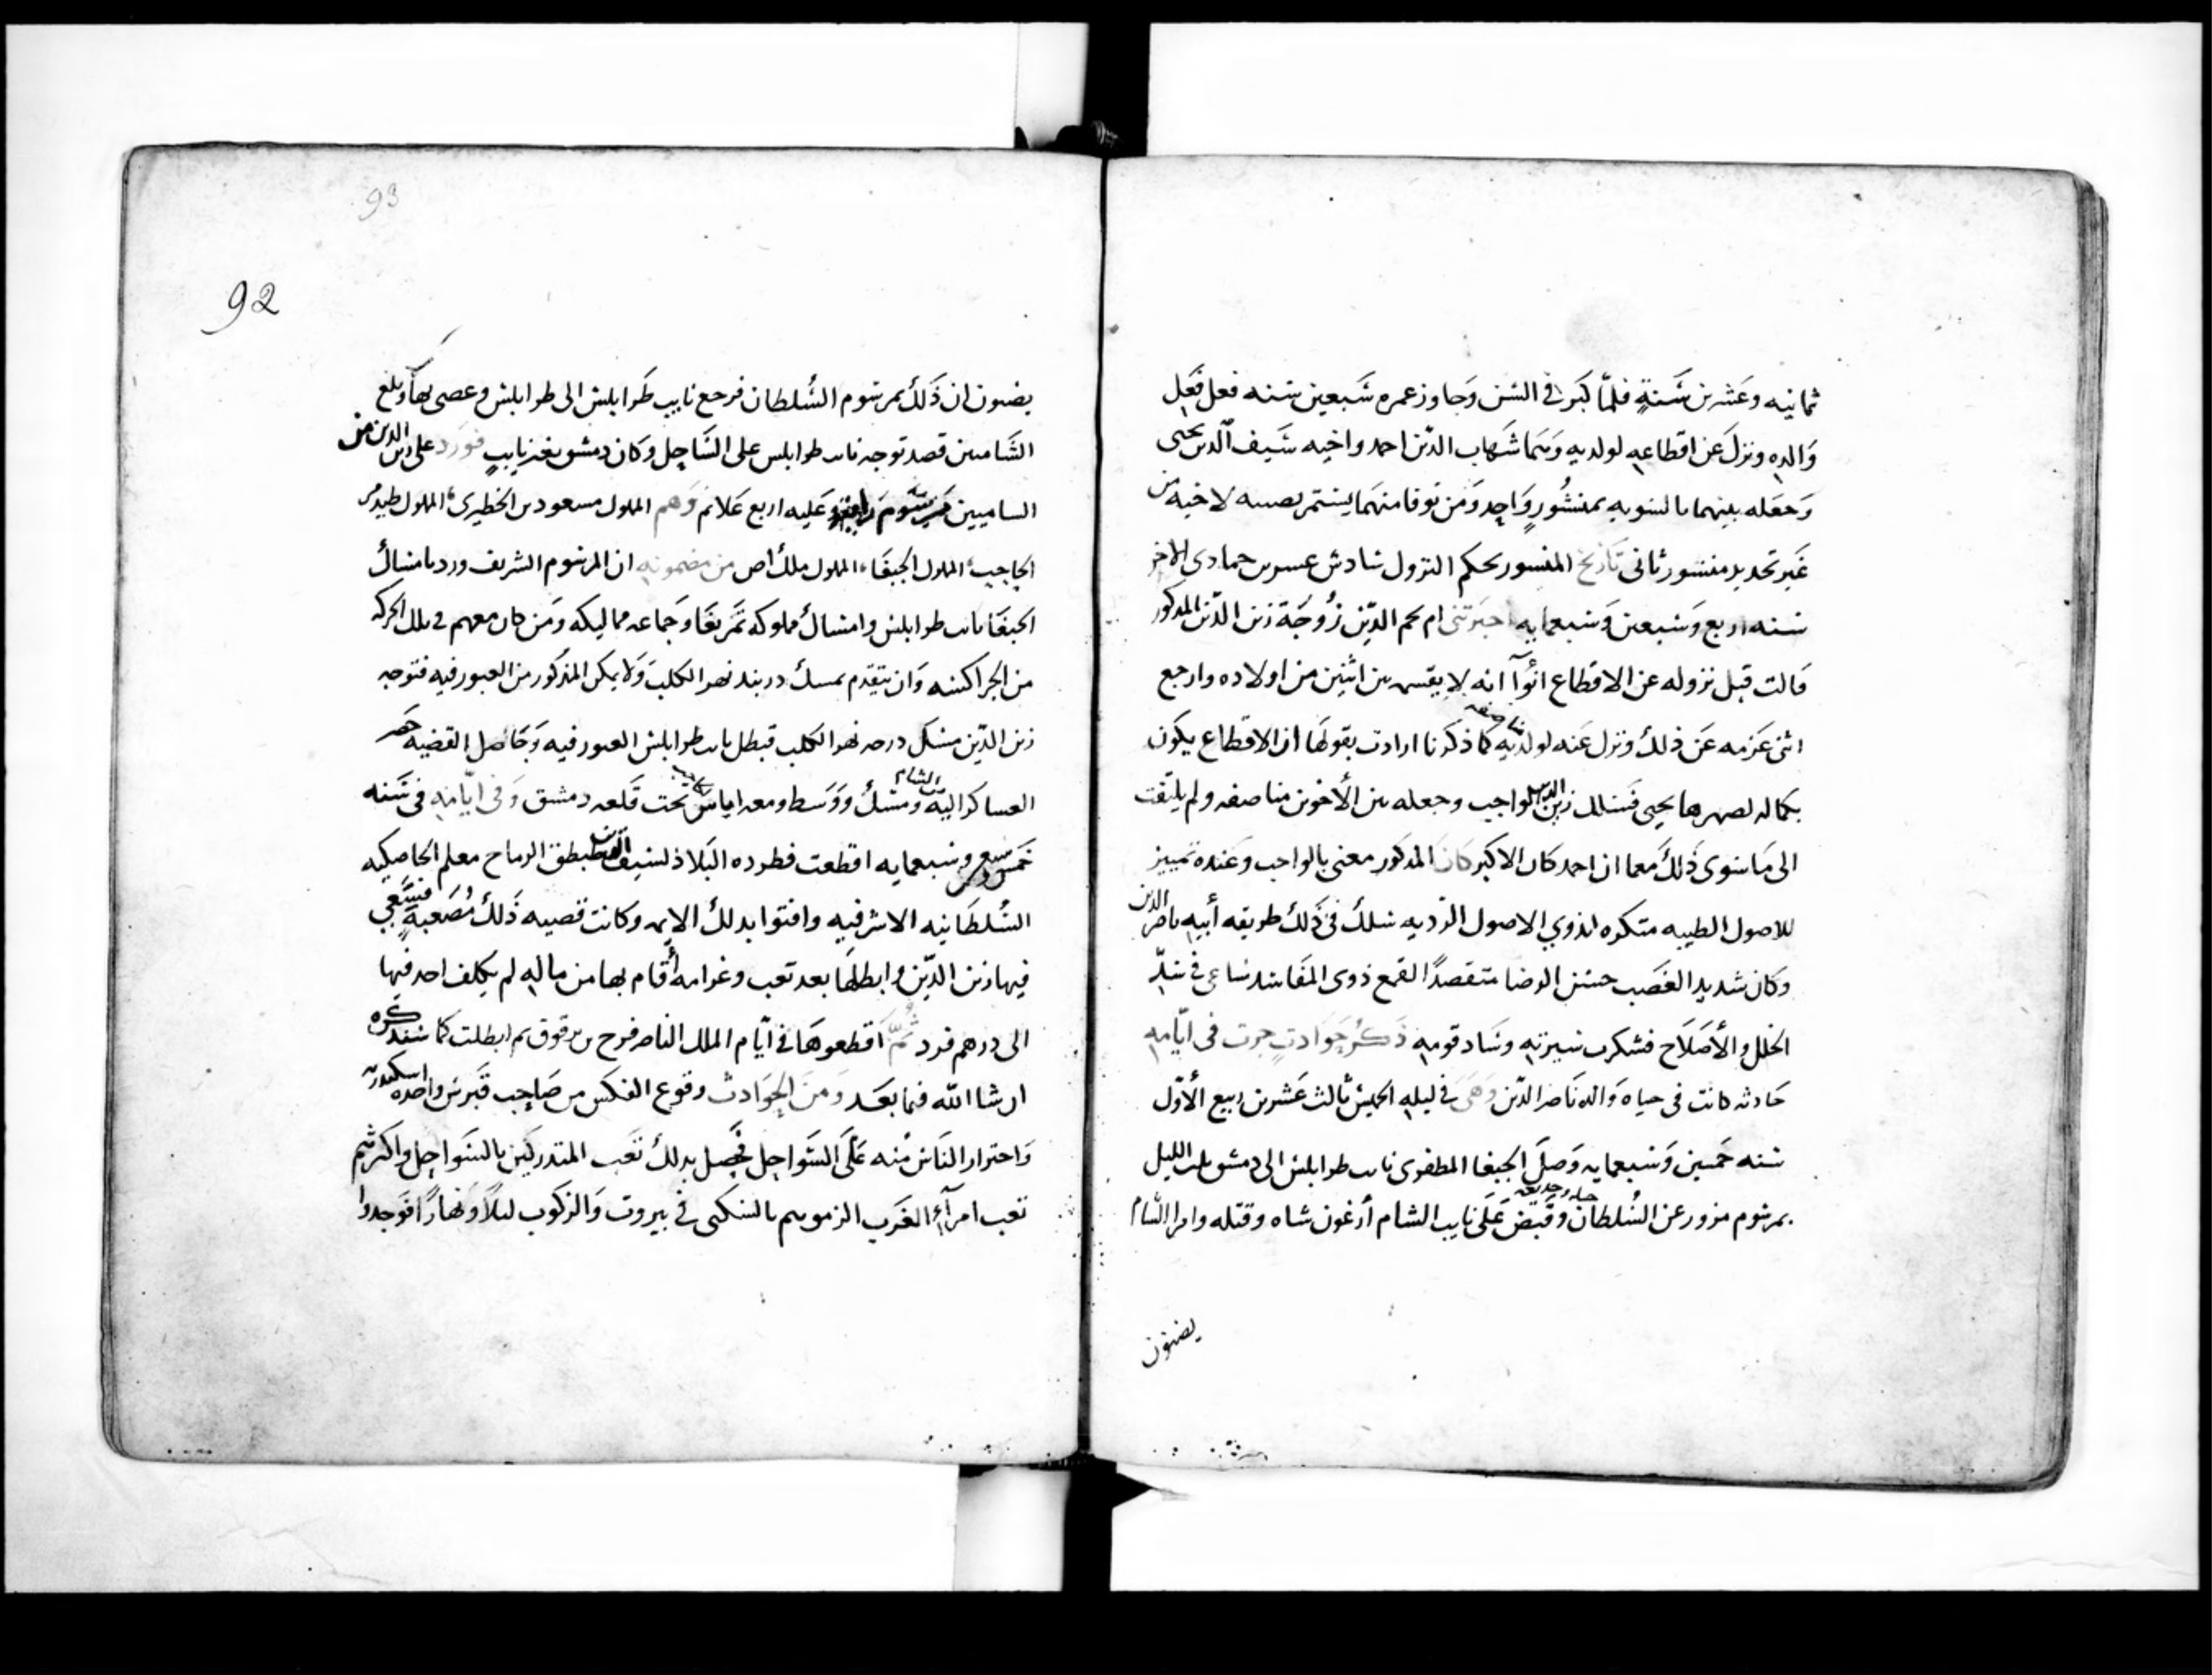 ثمانيه وعشرين سنة فلما كبر في السن وجاوز عمره سبعين سنه فعل فعل
والده ونزل عن اقطاعه لولديه وهما شهاب الدين احمد واخيه سيف الدين يحيى
وجعله بينهما بالسويه بمنشور واحد ومن توفا منهما يستمر نصيبه لاخيه من
غير تجديد منشور ثاني تاريخ المنشور بحكم النزول سادس عشرين جمادى الاخر
سنه اربع وسبعين وسبعمايه اخبرتني ام نجم الدين زوجة زين الدين المذكور
قالت قبل نزوله عن الاقطاع انه لا يقسم بين اثنين من اولاده وارجع
اثنى عزمه عن ذلك ونزل عنه لولديه مناصفه كما ذكرنا ارادت بقولها ان الاقطاع يكون
بكماله لصهرها يحيى فسلك زين الدين الواجب وجعله بين الأخوين مناصفه ولم يلتفت
الى ما سوى ذلك معما ان احمد كان الاكبر كان المذكور معنى بالواجب وعنده تمييز
للاصول الطيبه متكره لذوي الاصول الرديه سلك في ذلك طريقه أبيه ناصر الدين
وكان شديد الغضب حسن الرضا متقصدًا لقمع ذوى المفاسد ساعى في سدّ
الخلل والأصلاح فشكرت سيرته وساد قومه ذكر حوادث جرت في ايّامه
حادثه كانت في حياه والده ناصر الدين وهي في ليله الخميس ثالث عشرين ربيع الأوّل
سنه خمسين وسبعمايه وصل الجبغا المظفري نايب طرابلس الى دمشق الليل
بمرسوم مزور عن السلطان وقبض على نايب الشام أرغون شاه وقتله وامرا الشام
يضنون
93
92
يضنون ان ذلك بمرسوم السلطان فرجع نايب طرابلس الى طرابلس وعصى بها وبلغ
الشاميين قصد توجه نايب طرابلس على الساحل وكان دمشق بغير نايب فورد على زين الدين من
الساميين مرسوم عليه اربع علايم وهم المملوك مسعود بن الخطيرى المملوك طيدمر
الحاجب المملوك الجبغا المملوك ملك اص من مضمونه ان المرسوم الشريف ورد بامساك
الجبغا نايب طرابلس وامساك مملوكه تمربغا وجماعه مماليكه ومن كان معهم في تلك الحركه
من الجراكسه وان يتقدم بمسك دربند نهر الكلب ولا يمكن المذكور من العبور فيه فتوجه
زين الدين مسك دربند نهر الكلب فبطل نايب طرابلس العبور فيه وحاصل القضيه حضر
العساكر الشام اليه ومسك ووسط ومعه اياس تحت قلعه دمشق وفي ايّامه في سنه
خمس وسبعمايه اقطعت فطروده البلاد لسيف الدين طقطبق الرماح معلم الخاصكيه
السلطانيه الاشرفيه وافتوا بدلك الايمه وكانت قصيه ذلك مصعبة فسعى
فيها زين الدين وابطلها بعد تعب وغرامه أقام بها من ماله لم يكلف احد فيها
الى درهم فرد ثمّ أقطعوها في ايّام الملك الناصر فرج بن برقوق ثم ابطلت كما سنذكره
ان شا الله فيما بعد ومن الحوادث وقوع العكس من صاحب قبرس واخده اسكندريه
واحتراز الناس منه على السواحل فحصل بدلك تعب المتدركين بالسواحل واكثرهم
تعب امرآء الغرب الزموهم بالسكنى في بيروت والركوب ليلاً ونهارًا فوجدوا